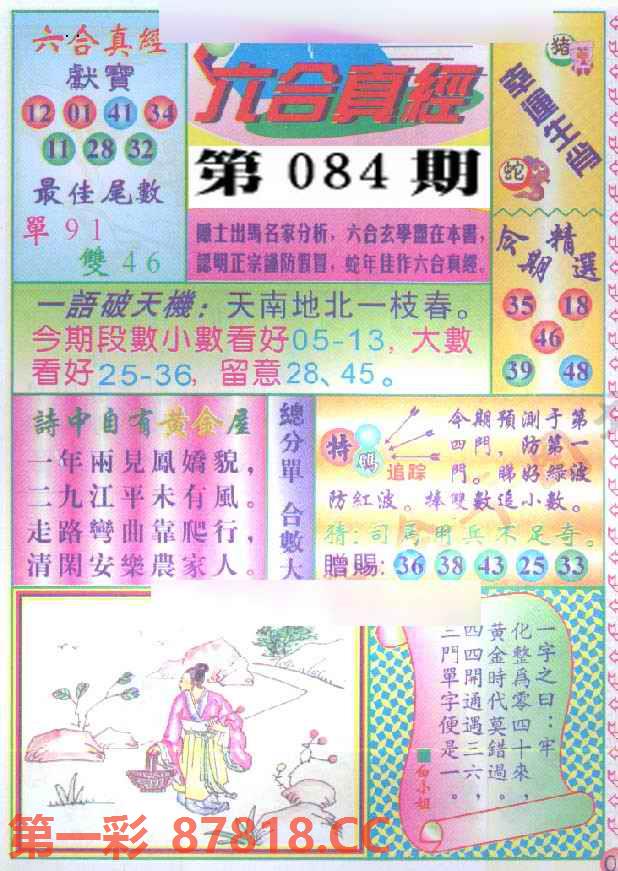 六合真經
獻寶
12 01 41 34
11 28 32
最佳尾數
單 9 1
雙 4 6
六合真經
第 084 期
隱士出馬名家分析，六合玄學盡在本書，
認明正宗謹防假冒，蛇年佳作六合真經。
豬
蛇
今期
精選
35 18
46
39 48
一語破天機：天南地北一枝春。
今期段數小數看好05-13，大數
看好25-36，留意28、45。
詩中自有黃金屋
一年兩見鳳嬌貌，
二九江平未有風。
走路彎曲靠爬行，
清閑安樂農家人。
總分單 合數大
特碼
追踪
今期預測于第
四門，防第一
門。睇好綠波
防紅波。捧雙數追小數。
猜：司馬用兵不足奇。
贈賜: 36 38 43 25 33
一字之曰：牢
化整爲零四十來，
黃金時代莫錯過。
四四開通遇三六，
三門單字便是一。
白小姐
第一彩 87818.CC